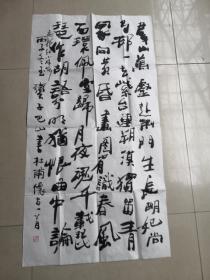 群山萬壑赴荊門生長明妃尚
有邨一去紫臺連朔漠獨留青
塚向黃昏畫圖省識春風
面環佩空歸月夜魂千載琵
琶作胡語分明猶恨曲中論
巴山書杜甫懷古一